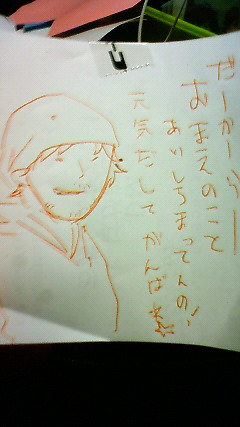 だーかーらー
おまえのこと
あいしちまってんの!
元気だして がんばれ